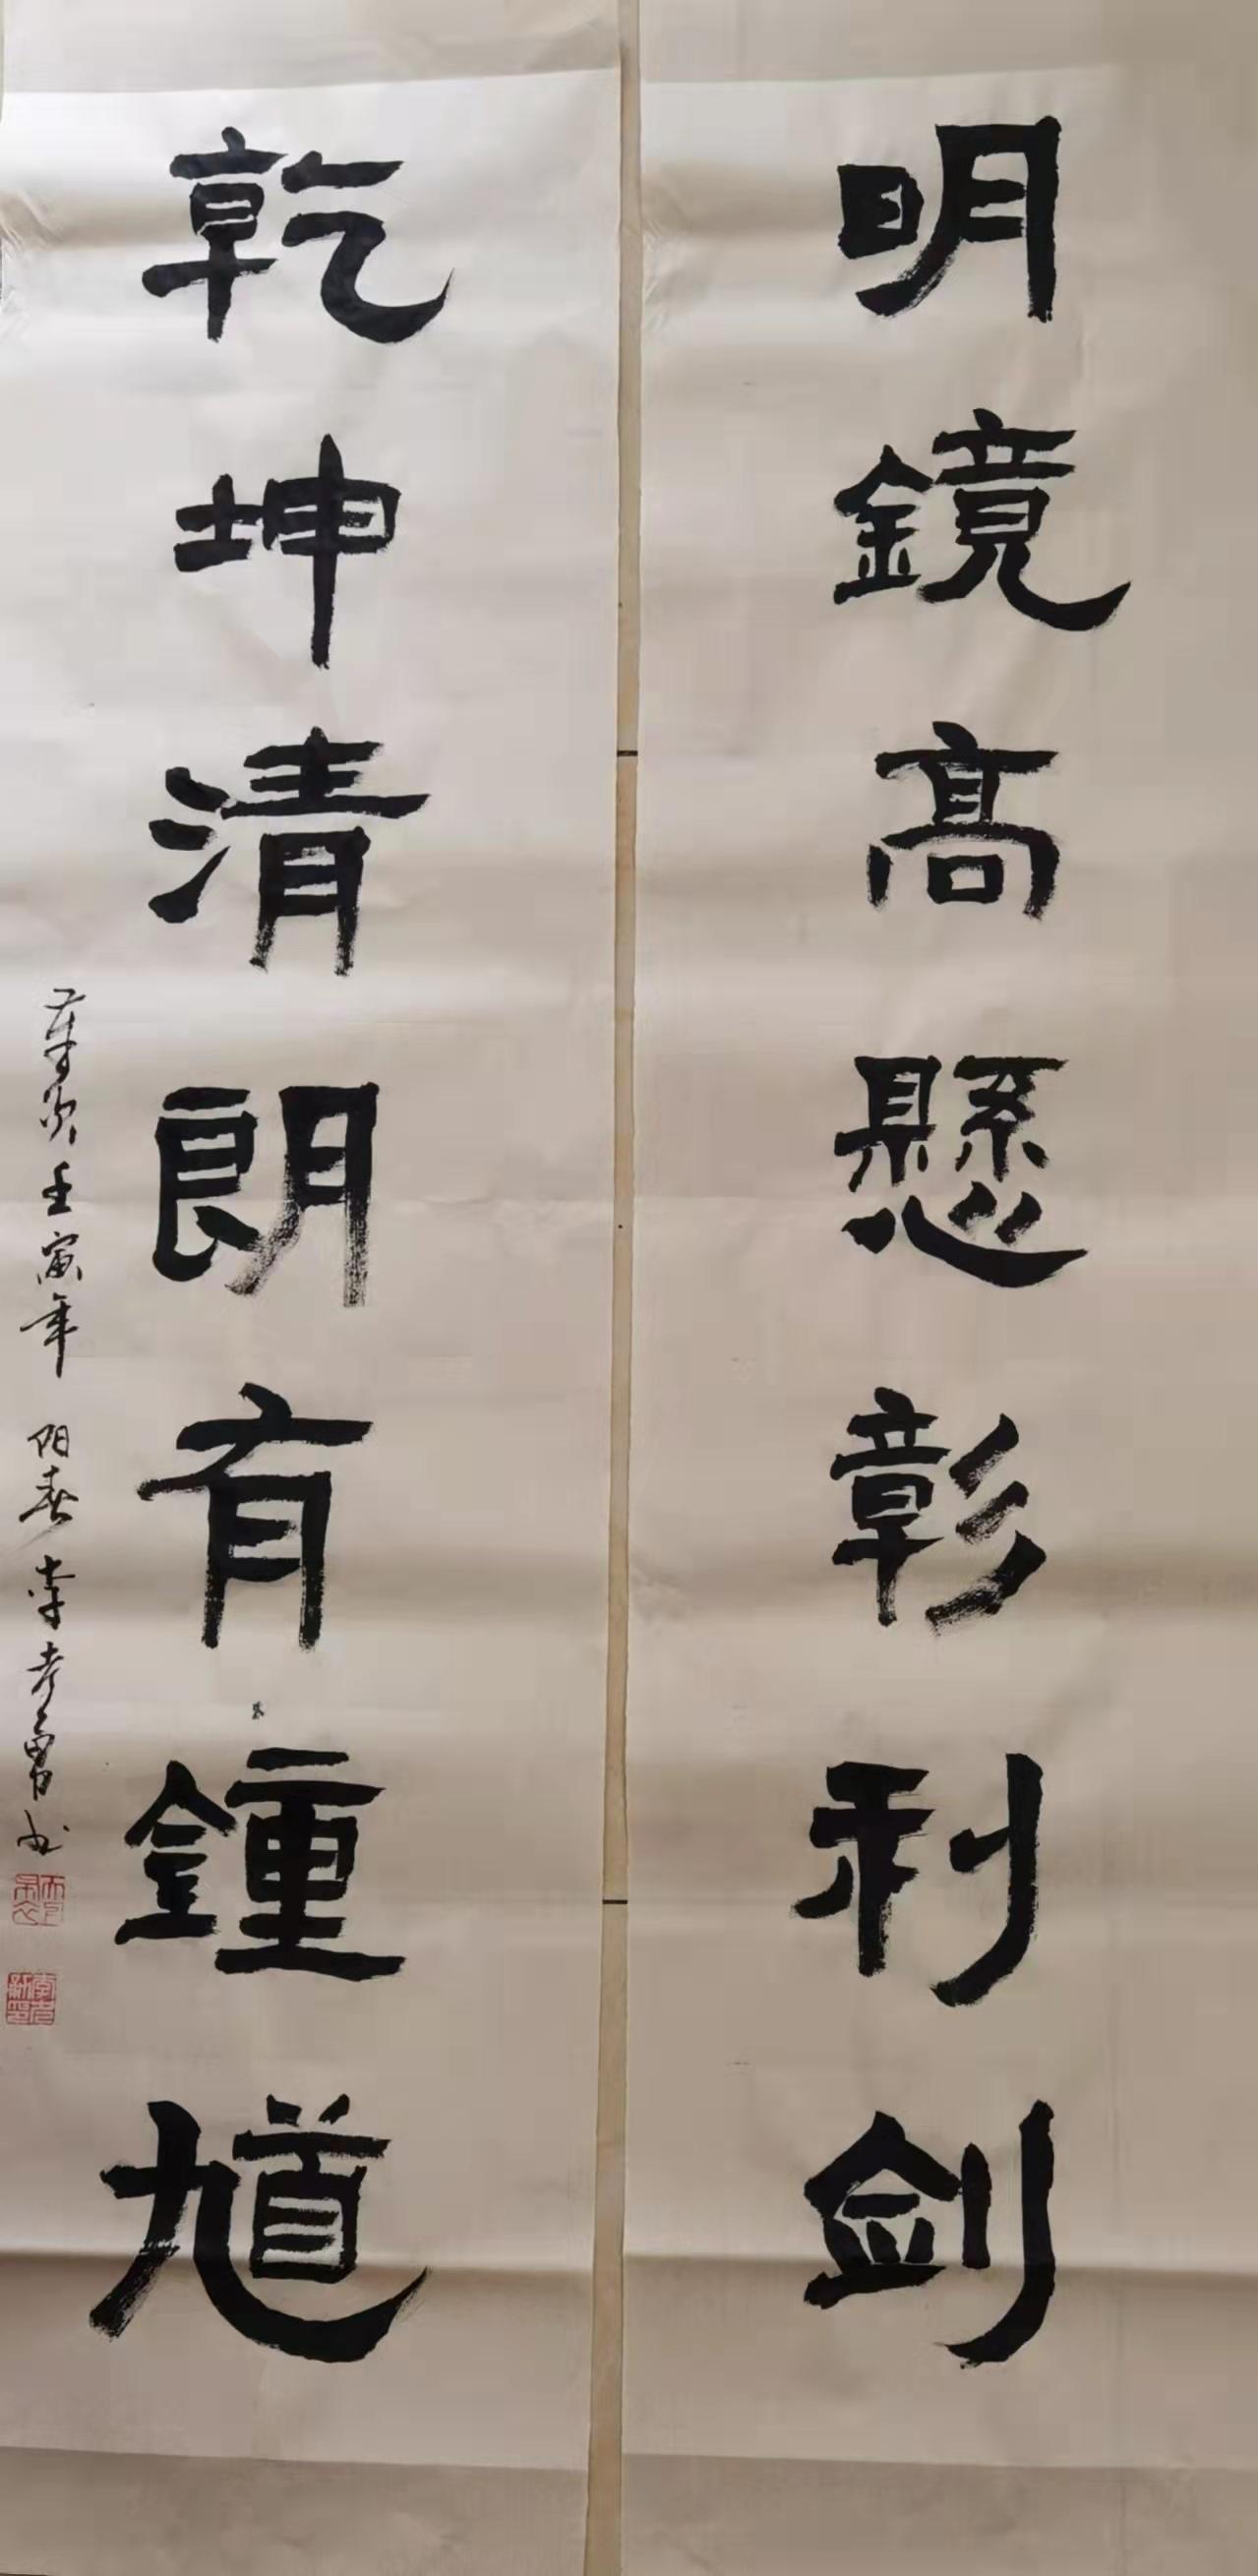 明鏡高懸彰利劍
乾坤清朗有鍾馗
歲次壬寅年 阳春 李孝勇书